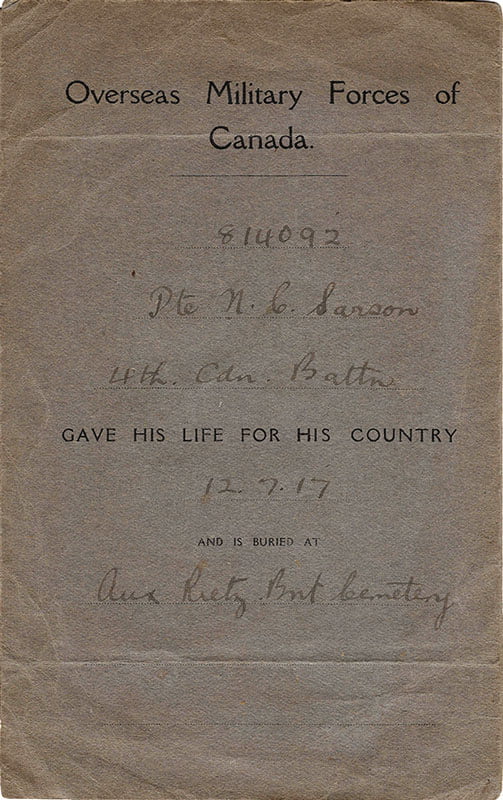 Overseas Military Forces of
Canada.
814092
Pte N. C. Sarson
4th. Cdn. Battn
GAVE HIS LIFE FOR HIS COUNTRY
12.7.17
AND IS BURIED AT
Aux Rietz Brit Cemetery